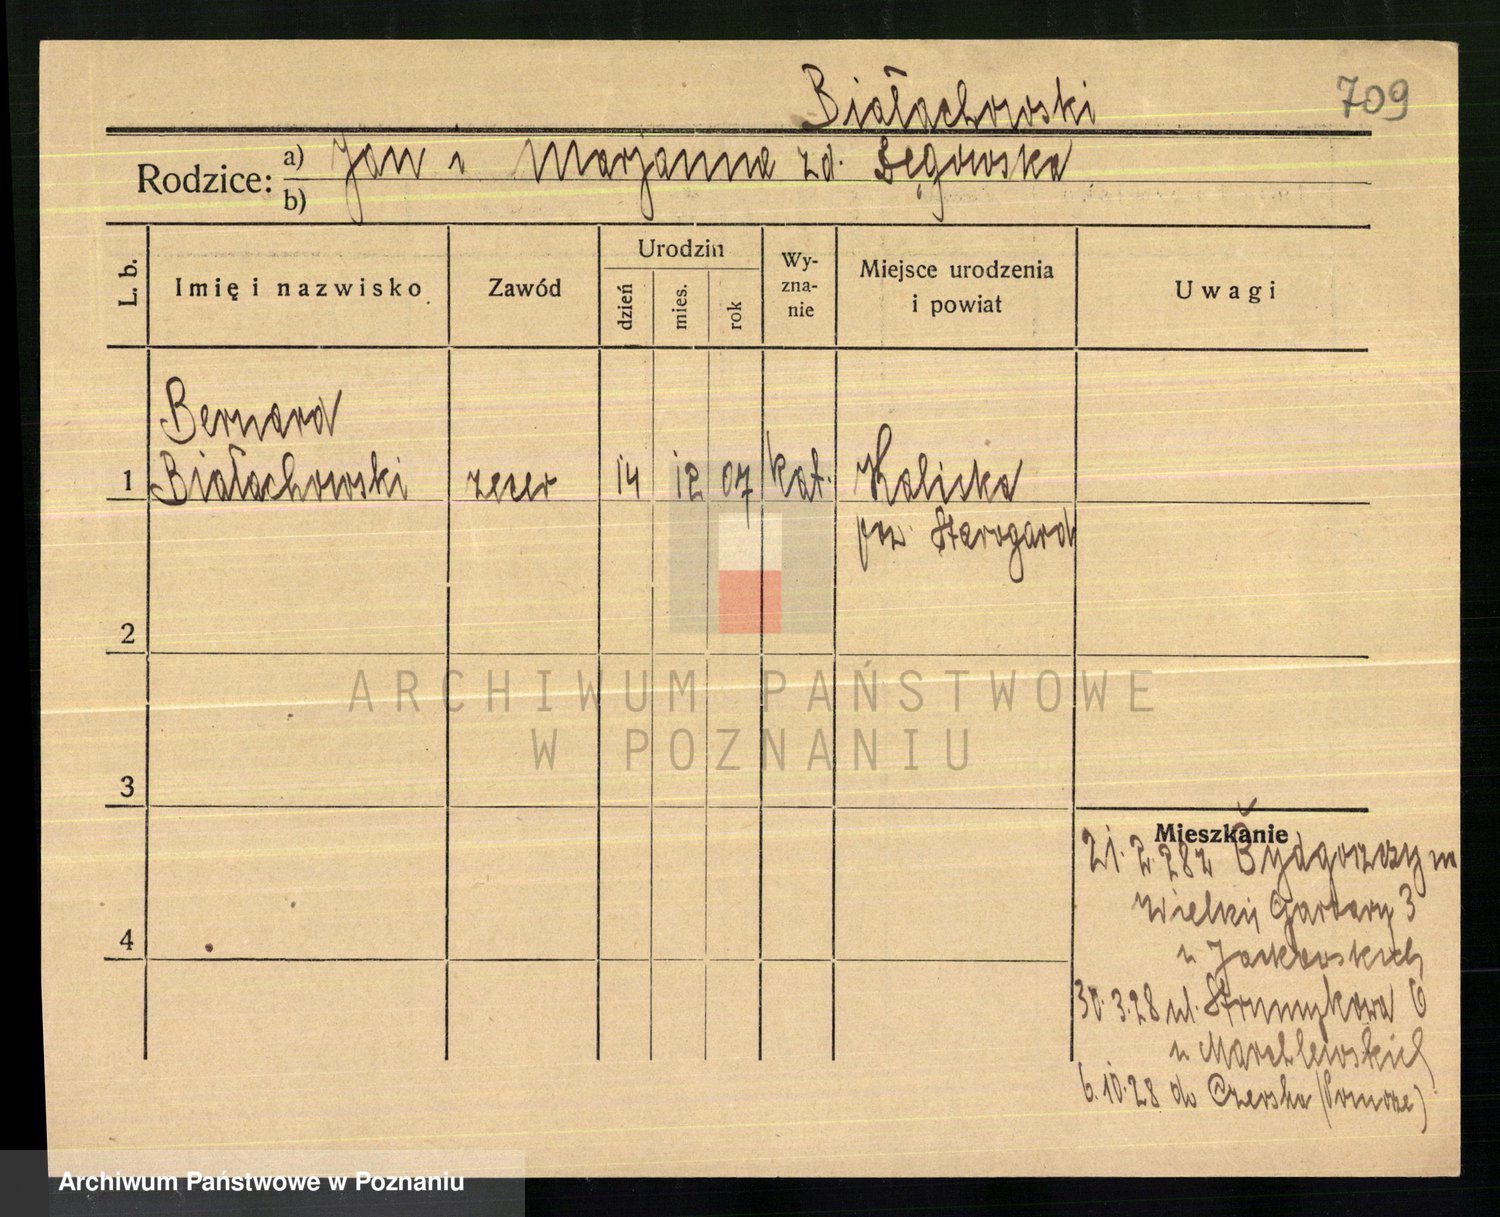 Białachowski
709
Rodzice: a) Jan i Marjanna zd. Bęgowska
b)
L. b. Imię i nazwisko Zawód Urodzin dzień mies. rok Wyznanie Miejsce urodzenia i powiat Uwagi
Bernard
1 Białachowski zecer 14 12 07 kat. Kaliska
pow. Starogard
2
ARCHIWUM PAŃSTWOWE
W POZNANIU
3
Mieszkanie
21.2.28 z Bydgoszczy na
Wielkie Garbary 3
u Jackowskich
4
30.3.28 ul. Strumykowa 6
u Marchlewskich
6.10.28 do Czerska (Pomorze)
Archiwum Państwowe w Poznaniu